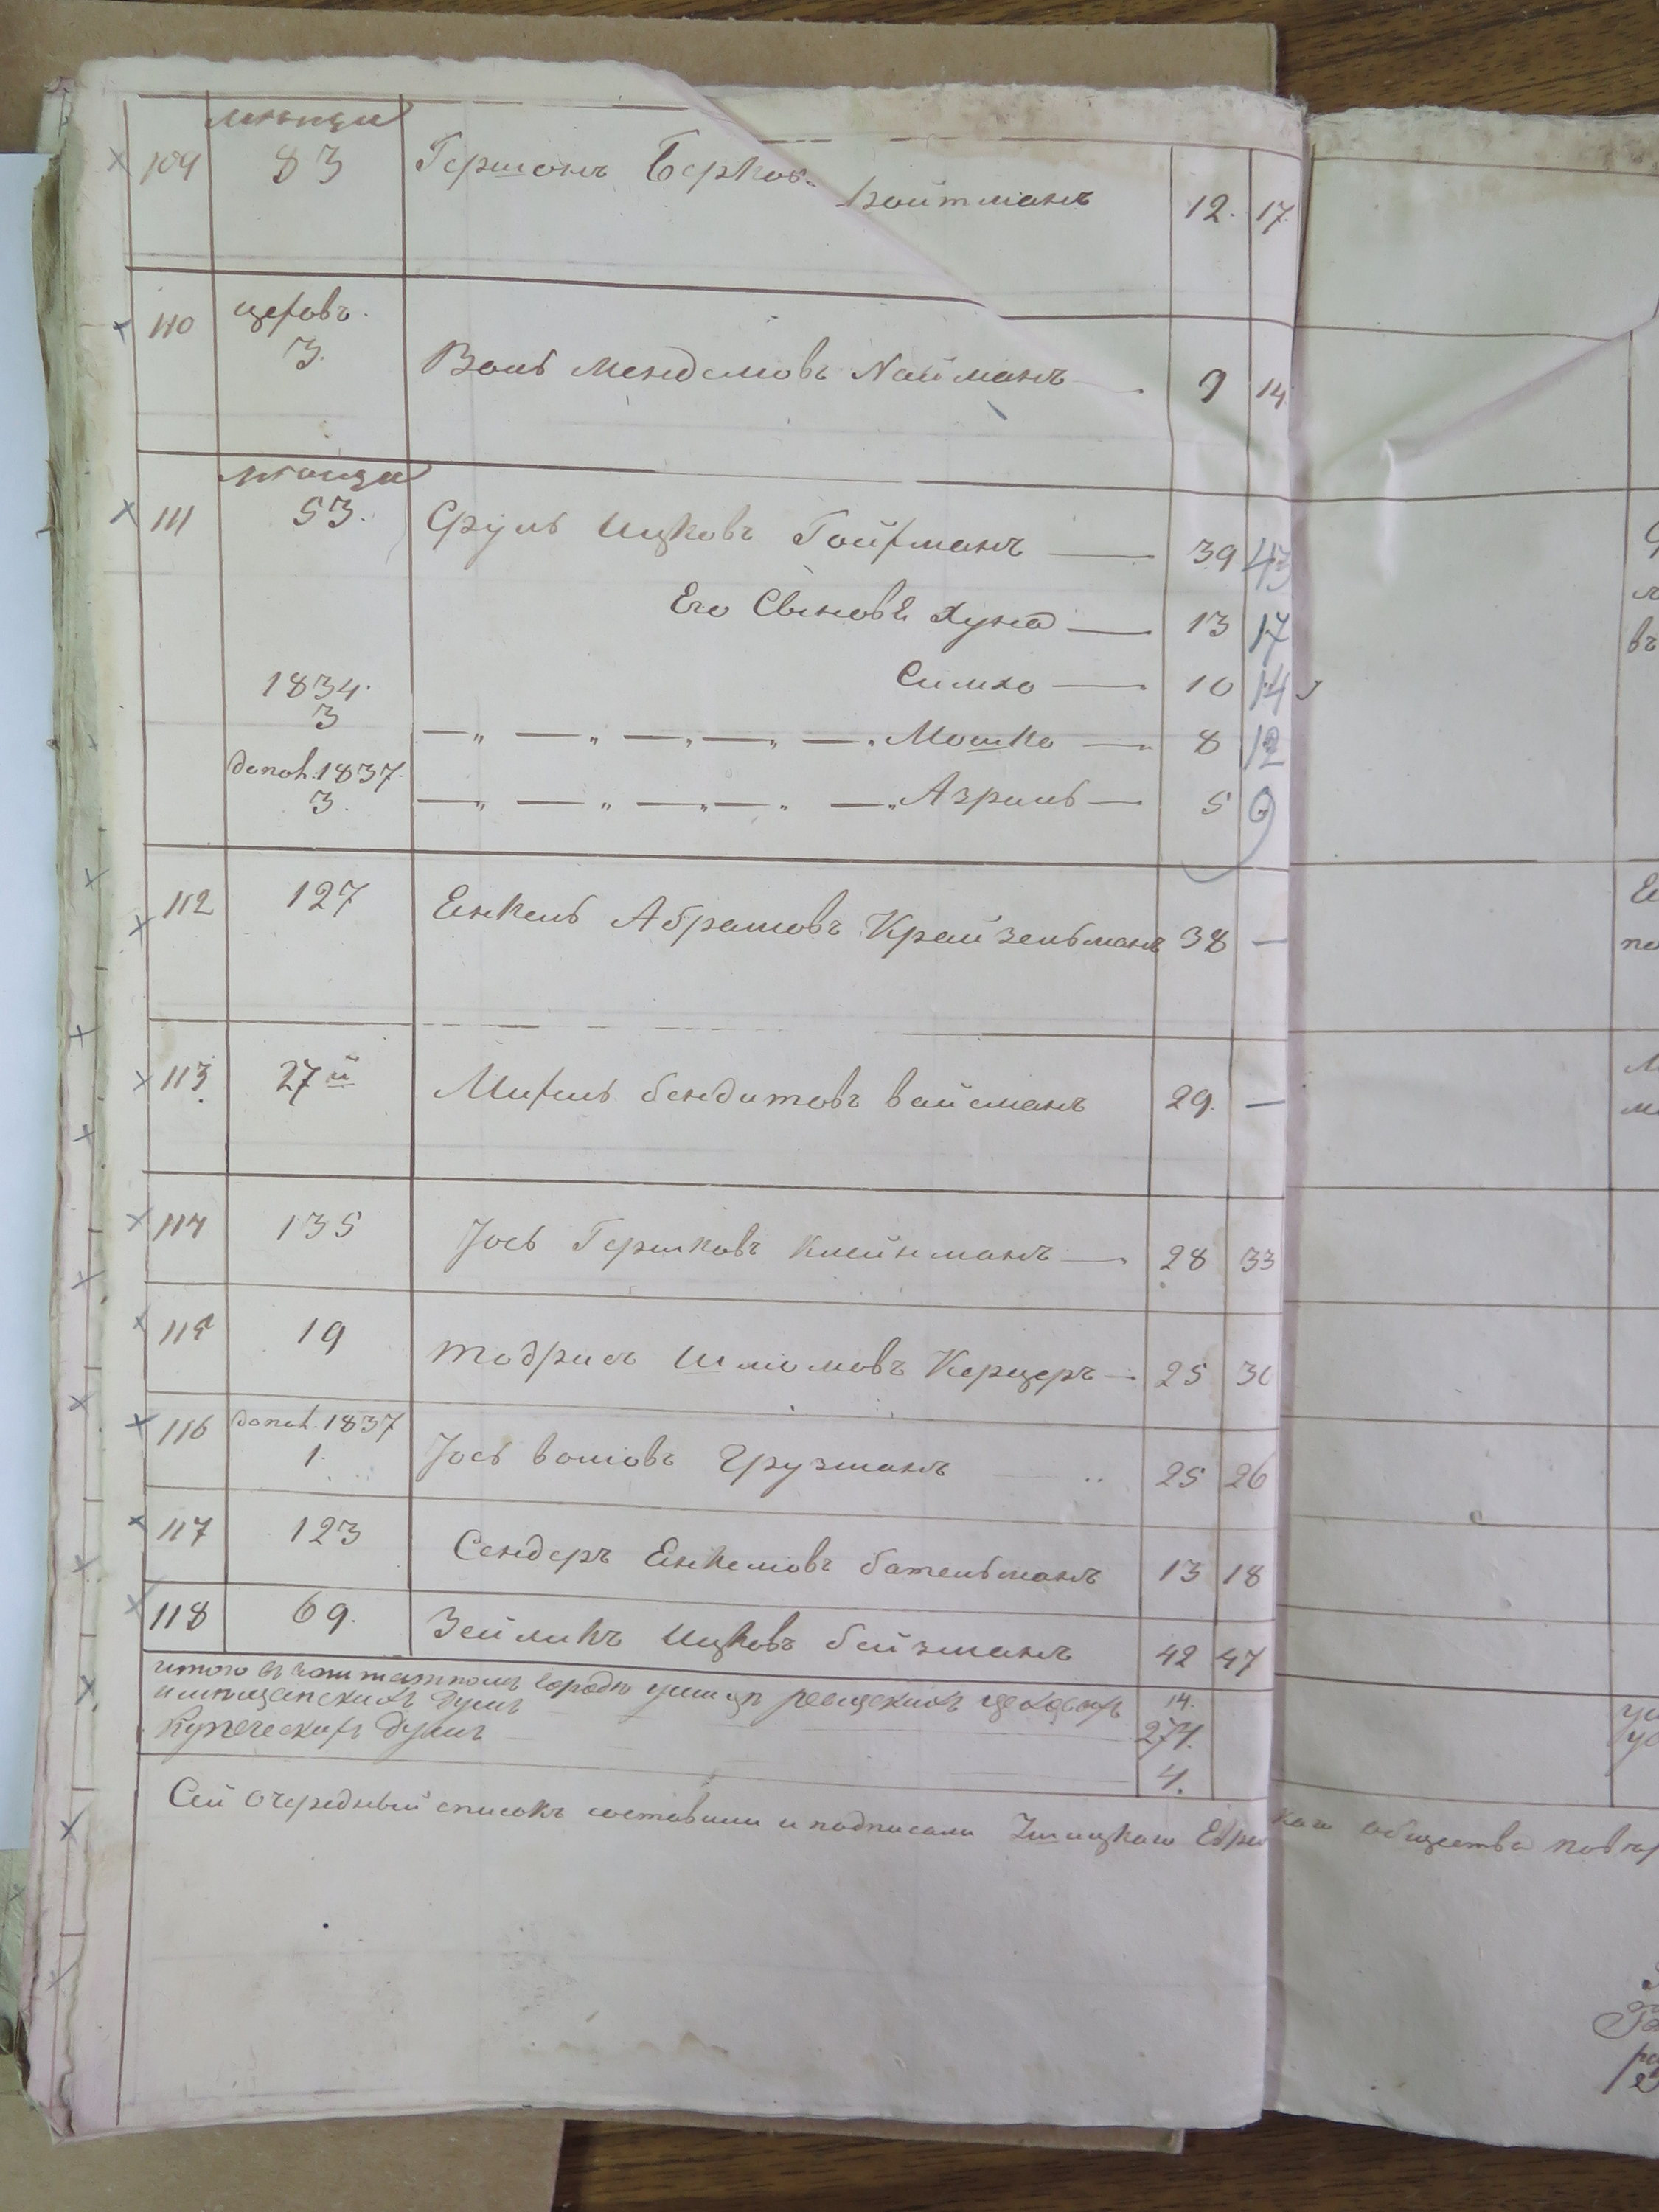 мѣщан
109 83 Гершонъ Берков. войтманъ 12. 17.
110 цеховъ.
3. Воль Менделовъ Найманъ 9 14.
мѣщан
111 53. Сруль Ицковъ Гойхманъ 39 43
Его Сыновѣ Хуна 13 17
1834. Симха 10 14
3 Мошко 8 12
допол. 1837.
3. Азриль 5 9
112 127 Енкель Абрамовъ Крайзельманъ 38 —
113. 27й Михель бендитовъ вайсманъ 29. —
114 135 Іось Гершковъ Клейнманъ 28 33
115 19 Тодрисъ Шлиомовъ Керцеръ 25 30
116 допол. 1837
1. Іось волиовъ Грузманъ 25 26
117 123 Сендеръ Енкелиовъ бательманъ 13 18
118 69. Зейликъ Ицковъ бейзманъ 42 47
итого въ заштатномъ городѣ ушицѣ ревизскихъ цеховыхъ 14.
и мѣщанскихъ душъ 274.
Купеческихъ душъ 4.
Сей Очередный списокъ составили и подписали Ушицкаго Евре каго общества повѣр